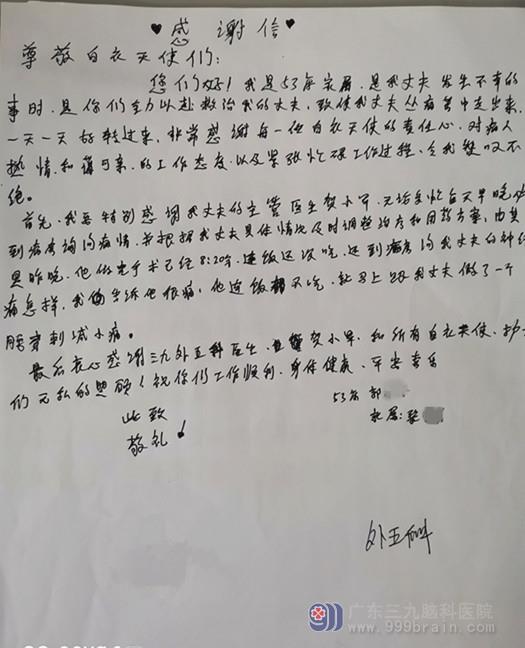 ♥感谢信♥
尊敬白衣天使们：
您们好！我是53床家属，是我丈夫发生不幸的
事时，是你们全力以赴救治我的丈夫，致使我丈夫从病危中走出来，
一天一天好转过来，非常感谢每一位白衣天使的责任心，对病人
热情和蔼可亲的工作态度，以及紧张忙碌工作过程，令我赞叹不
绝。
首先，我要特别感谢我丈夫的主管医生贺小军，无论多忙白天早晚
到病房询问病情，并根据我丈夫具体情况及时调整治疗和用药方案，尤其
是昨晚，他做完手术已经8:20分，连饭还没吃，还到病房询我丈夫的
病怎样，我告诉他很痛，他连饭都不吃，就马上跟我丈夫做了一个
腰穿刺减小痛。
最后衷心感谢三九外五科医生，贺小军，和所有白衣天使，护士
们无私的照顾！祝你们工作顺利，身体健康，平安喜乐
此致
敬礼！
53床 郭
家属：黎
外五科
广东三九脑科医院
www.999brain.com